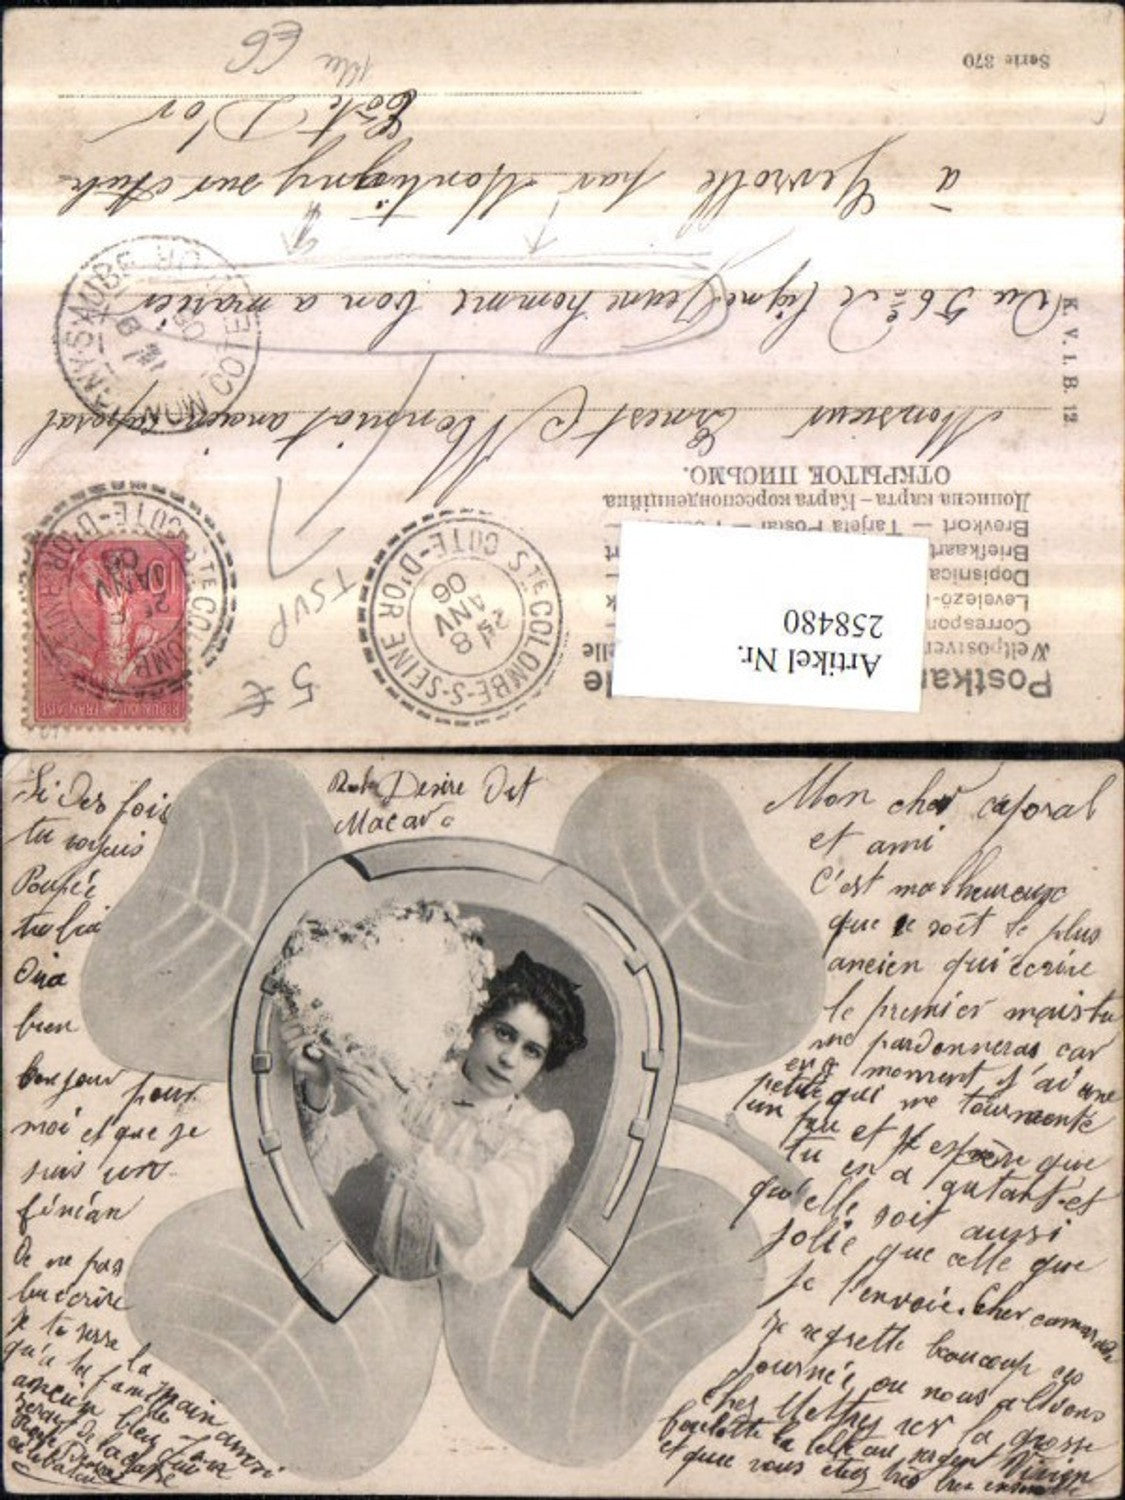 Serie 370
Côte D'or
à Gevrolle par Montigny sur Aube
Du 56e de ligne Jeune homme bon a marier
K. V. i. B. 12
Monsieur Ernest ancien caporal
ОТКРЫТОЕ ПИСЬМО.
Дописна карта – Карта корреспонденційна
Brevkort — Tarjeta Postal —
Briefkaart
Dopisnica
Levelező-
Correspon
Weltpostver
Postka
Artikel Nr.
258480
STE COLOMBE-S-SEINE
COTE-D'OR
TSVP
5 €
10
Desire Dit
Macaro
Si des fois
tu voyais
Poupée
tu lui
dira
bien
bonjour pour
moi et que je
suis un
fénian
De ne pas
lui écrire
je te serre
la main
Mon cher caporal
et ami
C'est malheureux
que ce soit le plus
ancien qui écrire
le premier mais tu
me pardonneras car
en ce moment j'ai une
petite qui me tourmente
un peu et j'espère que
tu en a autant et
qu'elle soit aussi
jolie que celle que
je t'envoie. Cher camarade
je regrette beaucoup
journée ou nous allions
chez la grosse
et que vous étiez très bien ensemble